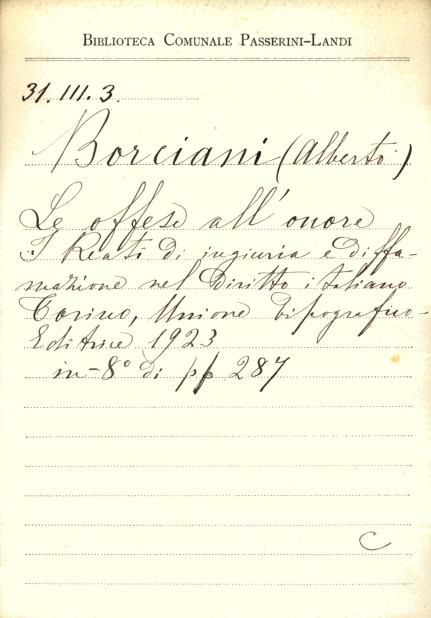 BIBLIOTECA COMUNALE PASSERINI-LANDI
31. III. 3.
Borciani (Alberto)
Le offese all' onore
I Reati di ingiuria e diffa-
mazione nel Diritto italiano
Torino, Unione Tipografico-
Editrice 1923
in-8° di pp 287
C